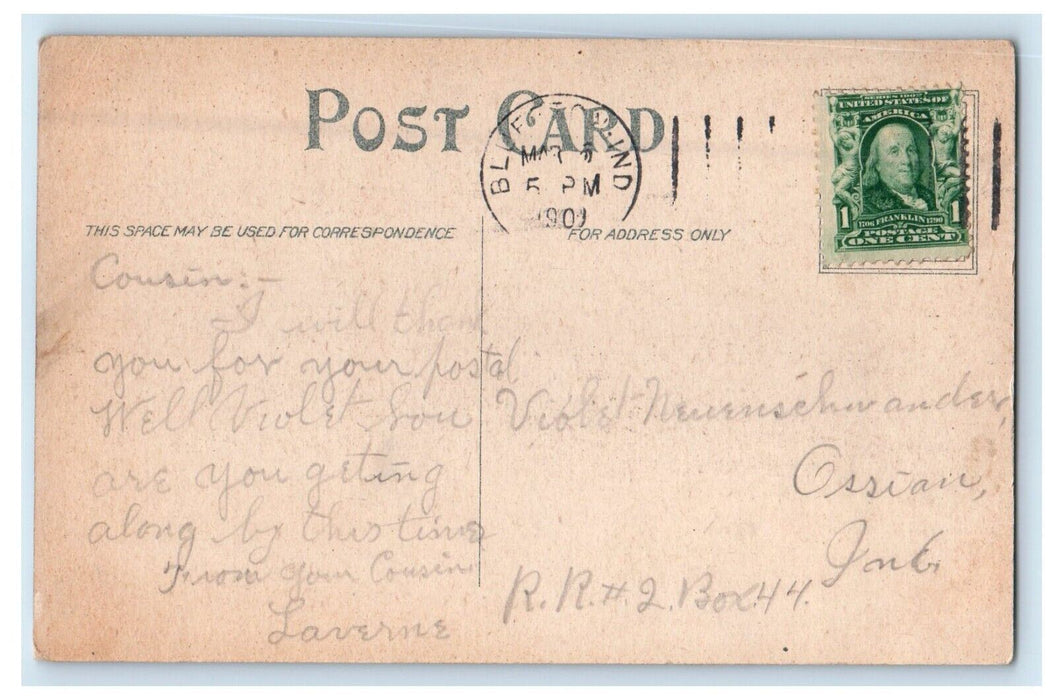 POST CARD
BLUFFTON, IND
MAR
5 PM
190
SERIES 1902
UNITED STATES OF
AMERICA
1 1706 FRANKLIN 1790 1
POSTAGE
ONE CENT
THIS SPACE MAY BE USED FOR CORRESPONDENCE
FOR ADDRESS ONLY
Cousin:-
I will thank
you for your postal
Well Violet hou
are you geting
along by this time
From your Cousin
Laverne
Violet Neuenschwander,
Ossian,
Ind.
R.R.#2. Box 44.